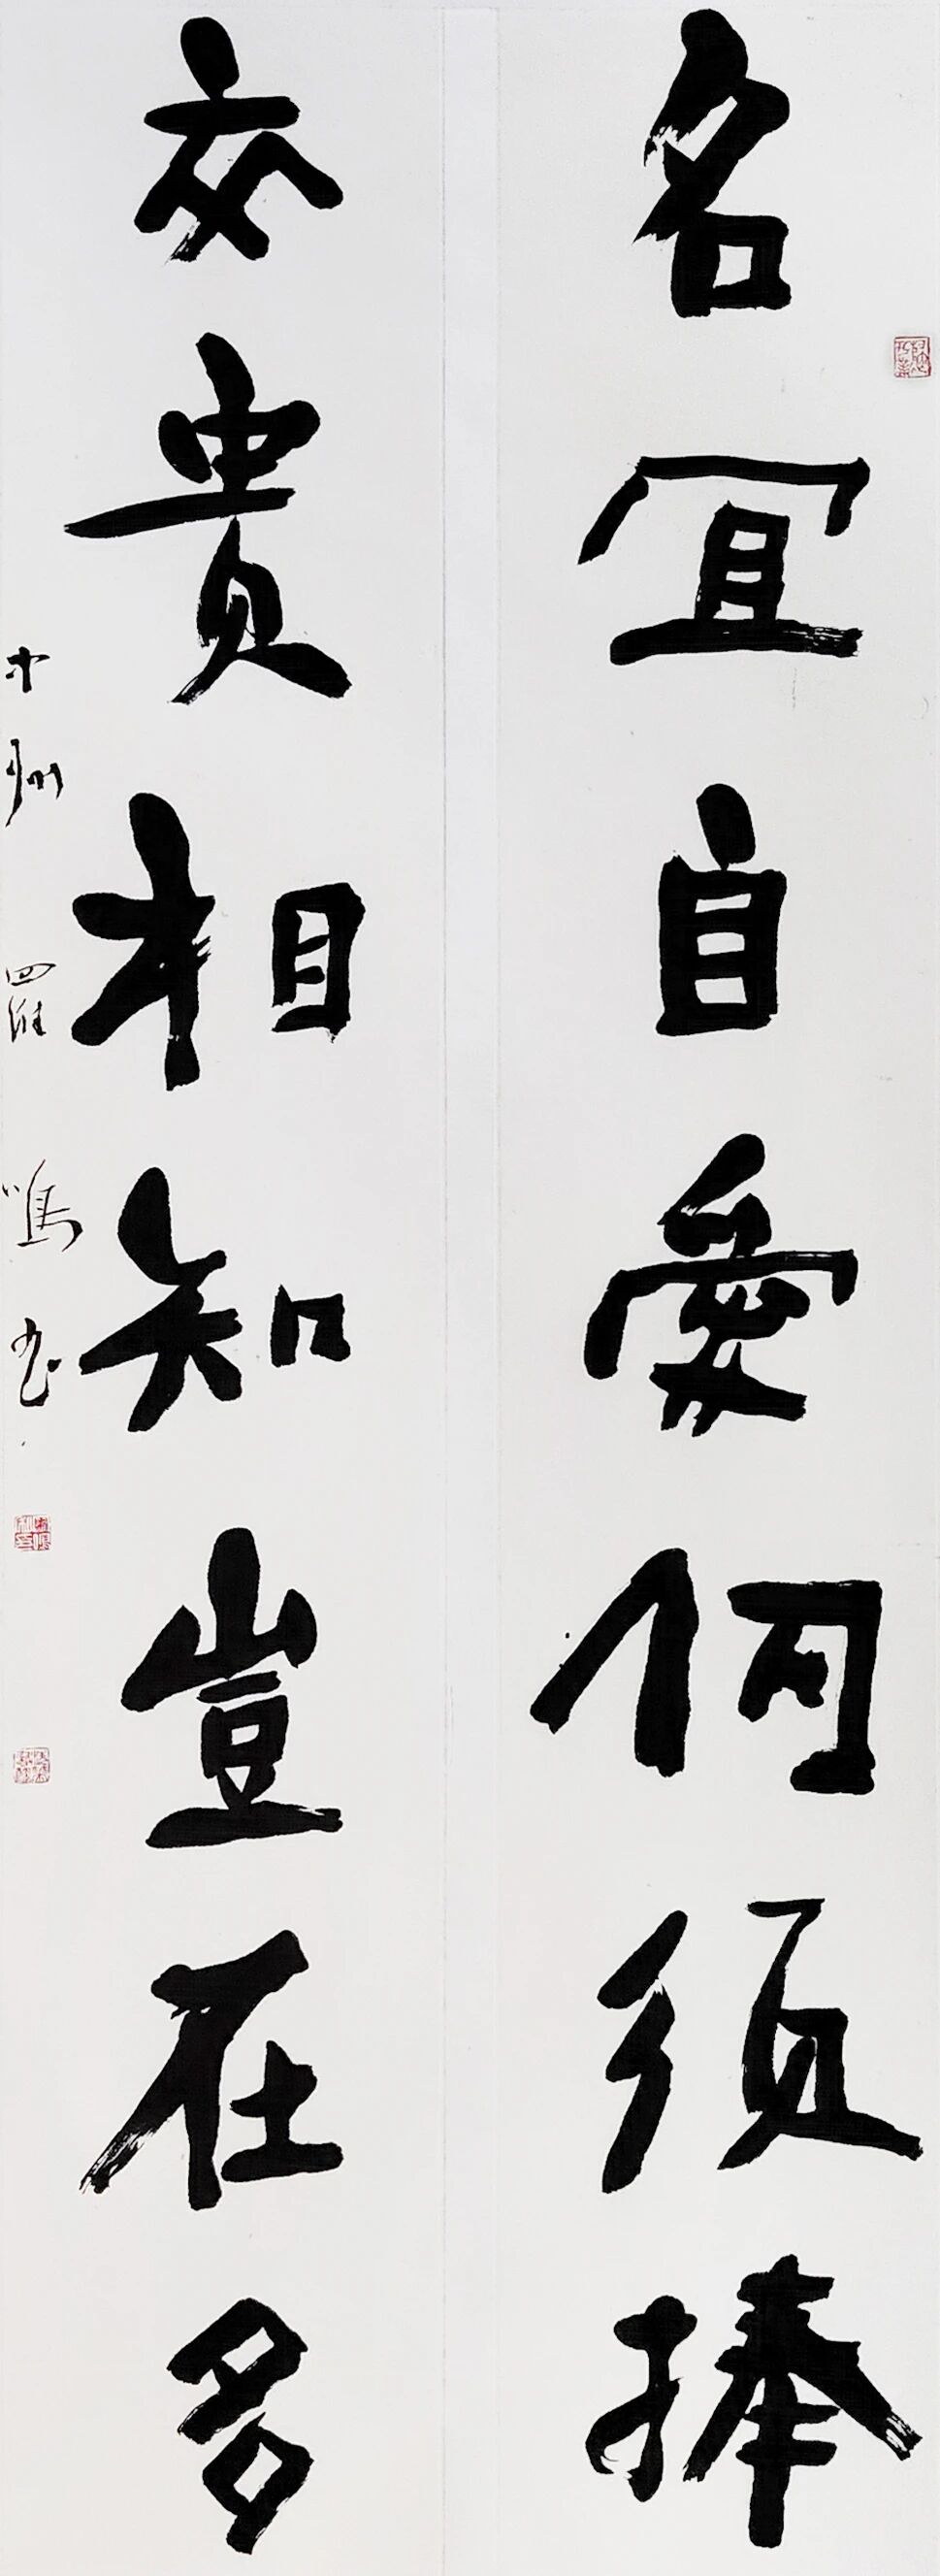 名宜自愛何須捧
交貴相知豈在多
中州 羅鳴書